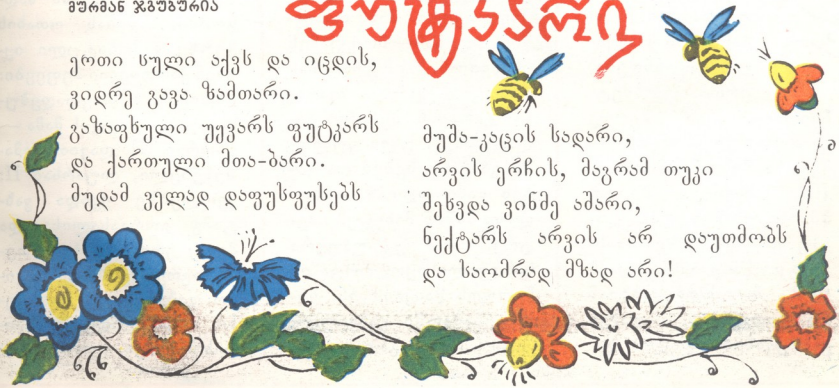 მურმან ჯგუბურია
ფუტკარი
ერთი სული აქვს და იცდის,
ვიდრე გავა ზამთარი.
გაზაფხული უყვარს ფუტკარს
და ქართული მთა-ბარი.
მუდამ ველად დაფუსფუსებს
მუშა-კაცის სადარი,
არვის ერჩის, მაგრამ თუკი
შეხვდა ვინმე აშარი,
ნექტარს არვის არ დაუთმობს
და საომრად მზად არი!